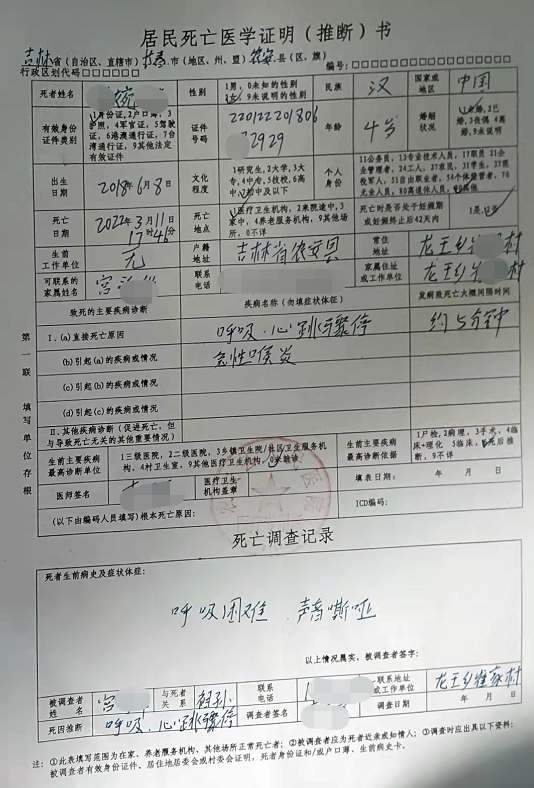 居民死亡医学证明（推断）书
吉林省（自治区、直辖市）长春市（地区、州、盟）农安县（区、旗）
行政区划代码□□□□□□ 编号：□□□□□□-□□□□□□□□
死者姓名 性别 1男，0未知的性别 2女，9未说明的性别 民族 汉 国家或地区 中国
有效身份证件类别 1身份证，2户口簿，3护照，4军官证，5驾驶证，6港澳通行证，7台湾通行证，9其他法定有效证件 证件号码 年龄 4岁 婚姻状况 1未婚，2已婚，3丧偶 4离婚，9未说明
出生日期 2018年6月8日 文化程度 1研究生，2大学，3大专，4中专，5技校，6高中，7初中及以下 个人身份 11公务员，13专业技术人员，17职员 21企业管理者，24工人，27农民，31学生，37现役军人，51自由职业者，54个体经营者，70无业人员，80离退休人员，90其他
死亡日期 2022年3月11日17时46分 死亡地点 1医疗卫生机构，2来院途中，3家中，4养老服务机构，9其他场所，0不详 死亡时是否处于妊娠期或妊娠终止后42天内 1是，2否
生前工作单位 无 户籍地址 吉林省农安县 常住地址 龙王乡 村
可联系的家属姓名 宫 联系电话 家属住址或工作单位 龙王乡 村
致死的主要疾病诊断 疾病名称（勿填症状体征） 发病致死亡大概间隔时间
第一联 填写单位存根
Ⅰ.(a)直接死亡原因 呼吸.心跳骤停 约5分钟
(b)引起(a)的疾病或情况 急性喉炎
(c)引起(b)的疾病或情况
(d)引起(c)的疾病或情况
Ⅱ.其他疾病诊断（促进死亡，但与导致死亡无关的其他重要情况）
生前主要疾病最高诊断单位 1三级医院，2二级医院，3乡镇卫生院/社区卫生服务机构，4村卫生室，9其他医疗卫生机构，0未就诊 生前主要疾病最高诊断依据 1尸检，2病理，3手术，4临床+理化 5临床，6死后推断，9不详
医师签名 医疗卫生机构盖章 填表日期： 年 月 日
（以下由编码人员填写）根本死亡原因： ICD编码：
死亡调查记录
死者生前病史及症状体征：
呼吸困难 声音嘶哑
以上情况属实，被调查者签字：
被调查者姓名 宫 与死者关系 祖孙 联系电话 联系地址或工作单位 龙王乡崔家村
死因推断 呼吸.心跳骤停 调查者签名 调查日期 年 月 日
注：①此表填写范围为在家、养老服务机构、其他场所正常死亡者；②被调查者应为死者近亲或知情人；③调查时应出具以下资料：
被调查者有效身份证件，居住地居委会或村委会证明，死者身份证和/或户口簿、生前病史卡。